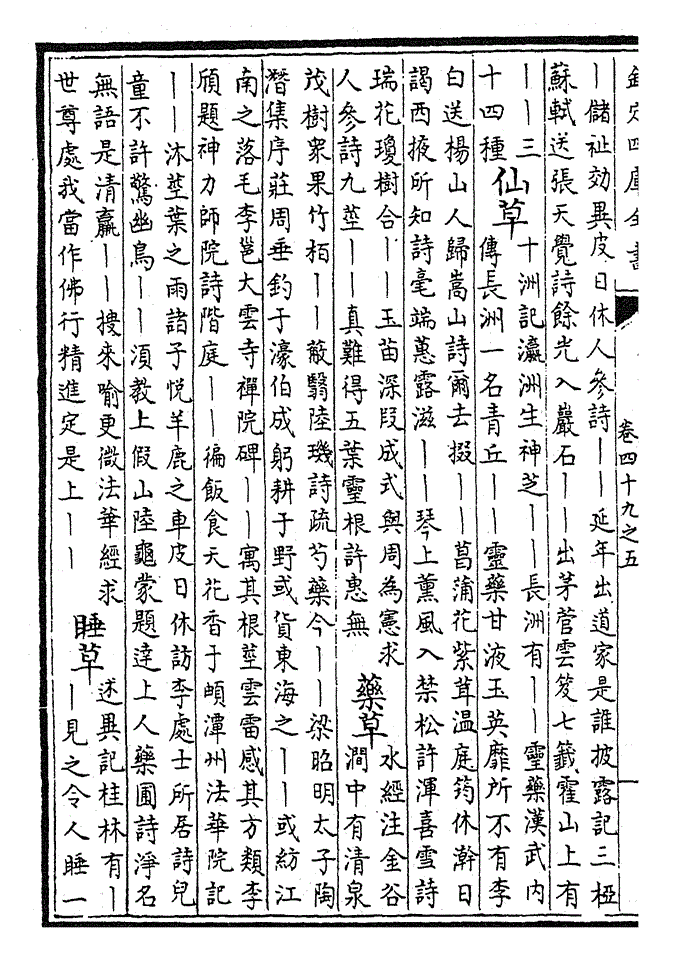 欽定四庫全書
卷四十九之五
｜儲祉効異皮日休人參詩｜｜延年出道家是誰披露記三椏
蘇軾送張天覺詩餘光入巖石｜｜出茅菅雲笈七籤霍山上有
｜｜三
十四種
仙草
十洲記瀛洲生神芝｜｜長洲有｜｜靈藥漢武内
傳長洲一名青丘｜｜靈藥甘液玉英靡所不有李
白送楊山人歸嵩山詩爾去掇｜｜菖蒲花紫茸温庭筠休澣日
謁西掖所知詩毫端蕙露滋｜｜琴上薰風入禁松許渾喜雪詩
瑞花瓊樹合｜｜玉苗深段成式與周為憲求
人參詩九莖｜｜真難得五葉靈根許惠無
藥草
水經注金谷
澗中有清泉
茂樹衆果竹柏｜｜蔽翳陸璣詩疏芍藥今｜｜梁昭明太子陶
潛集序莊周垂釣于濠伯成躬耕于野或貨東海之｜｜或紡江
南之落毛李邕大雲寺禪院碑｜｜寓其根莖雲雷感其方類李
頎題神力師院詩階庭｜｜徧飯食天花香于頔潭州法華院記
｜｜沐莖葉之雨諸子悦羊鹿之車皮日休訪李處士所居詩兒
童不許驚幽鳥｜｜湏教上假山陸龜蒙題達上人藥圃詩淨名
無語是清羸｜｜搜來喻更微法華經求
世尊處我當作佛行精進定是上｜｜
睡草
述異記桂林有｜
｜見之令人睡一